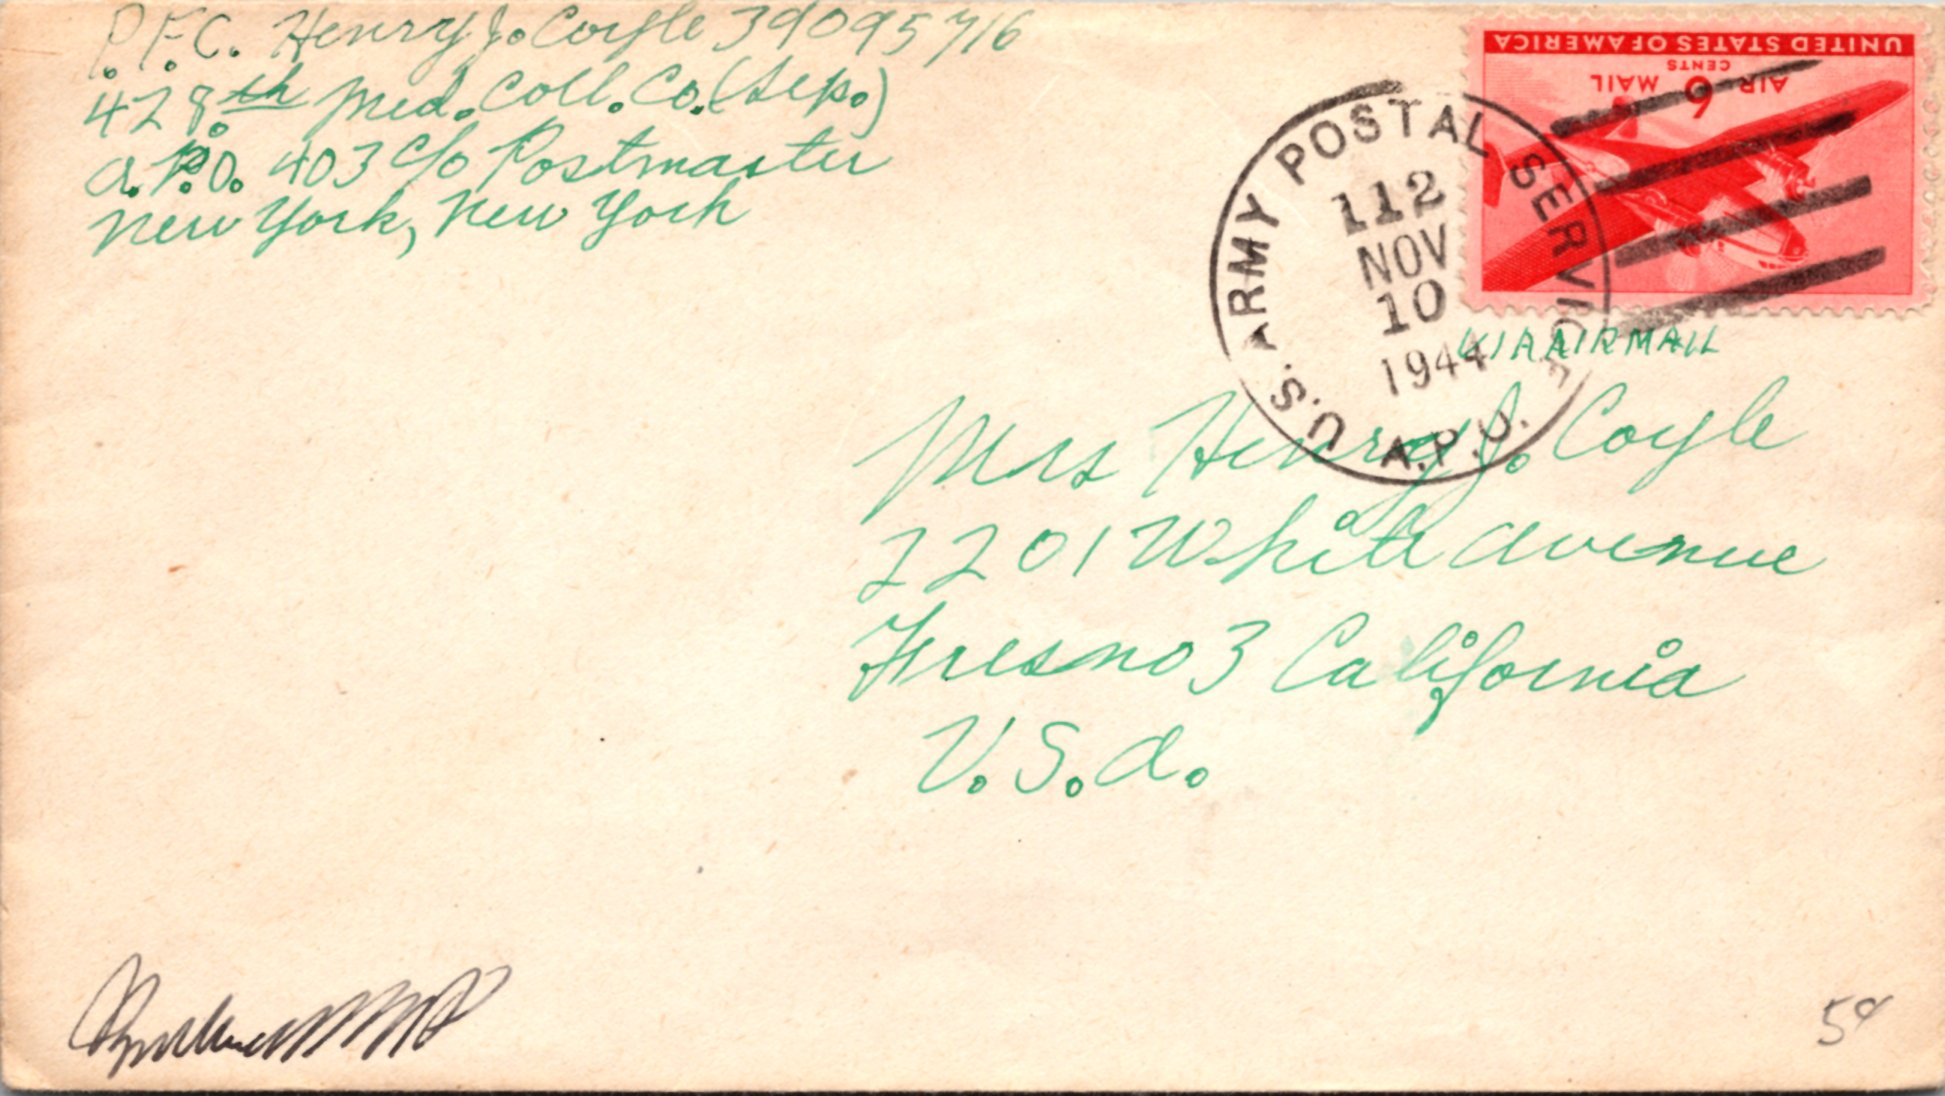 P.F.C. Henry J. Coyle 39095716
428th Med. Coll. Co. (Sep.)
A.P.O. 403 c/o Postmaster
New York, New York
UNITED STATES OF AMERICA
CENTS
AIR 6 MAIL
U.S. ARMY POSTAL SERVICE
112
NOV
10
1944
A.P.O.
VIA AIRMAIL
Mrs Henry J. Coyle
2201 White Avenue
Fresno 3 California
U.S.A.